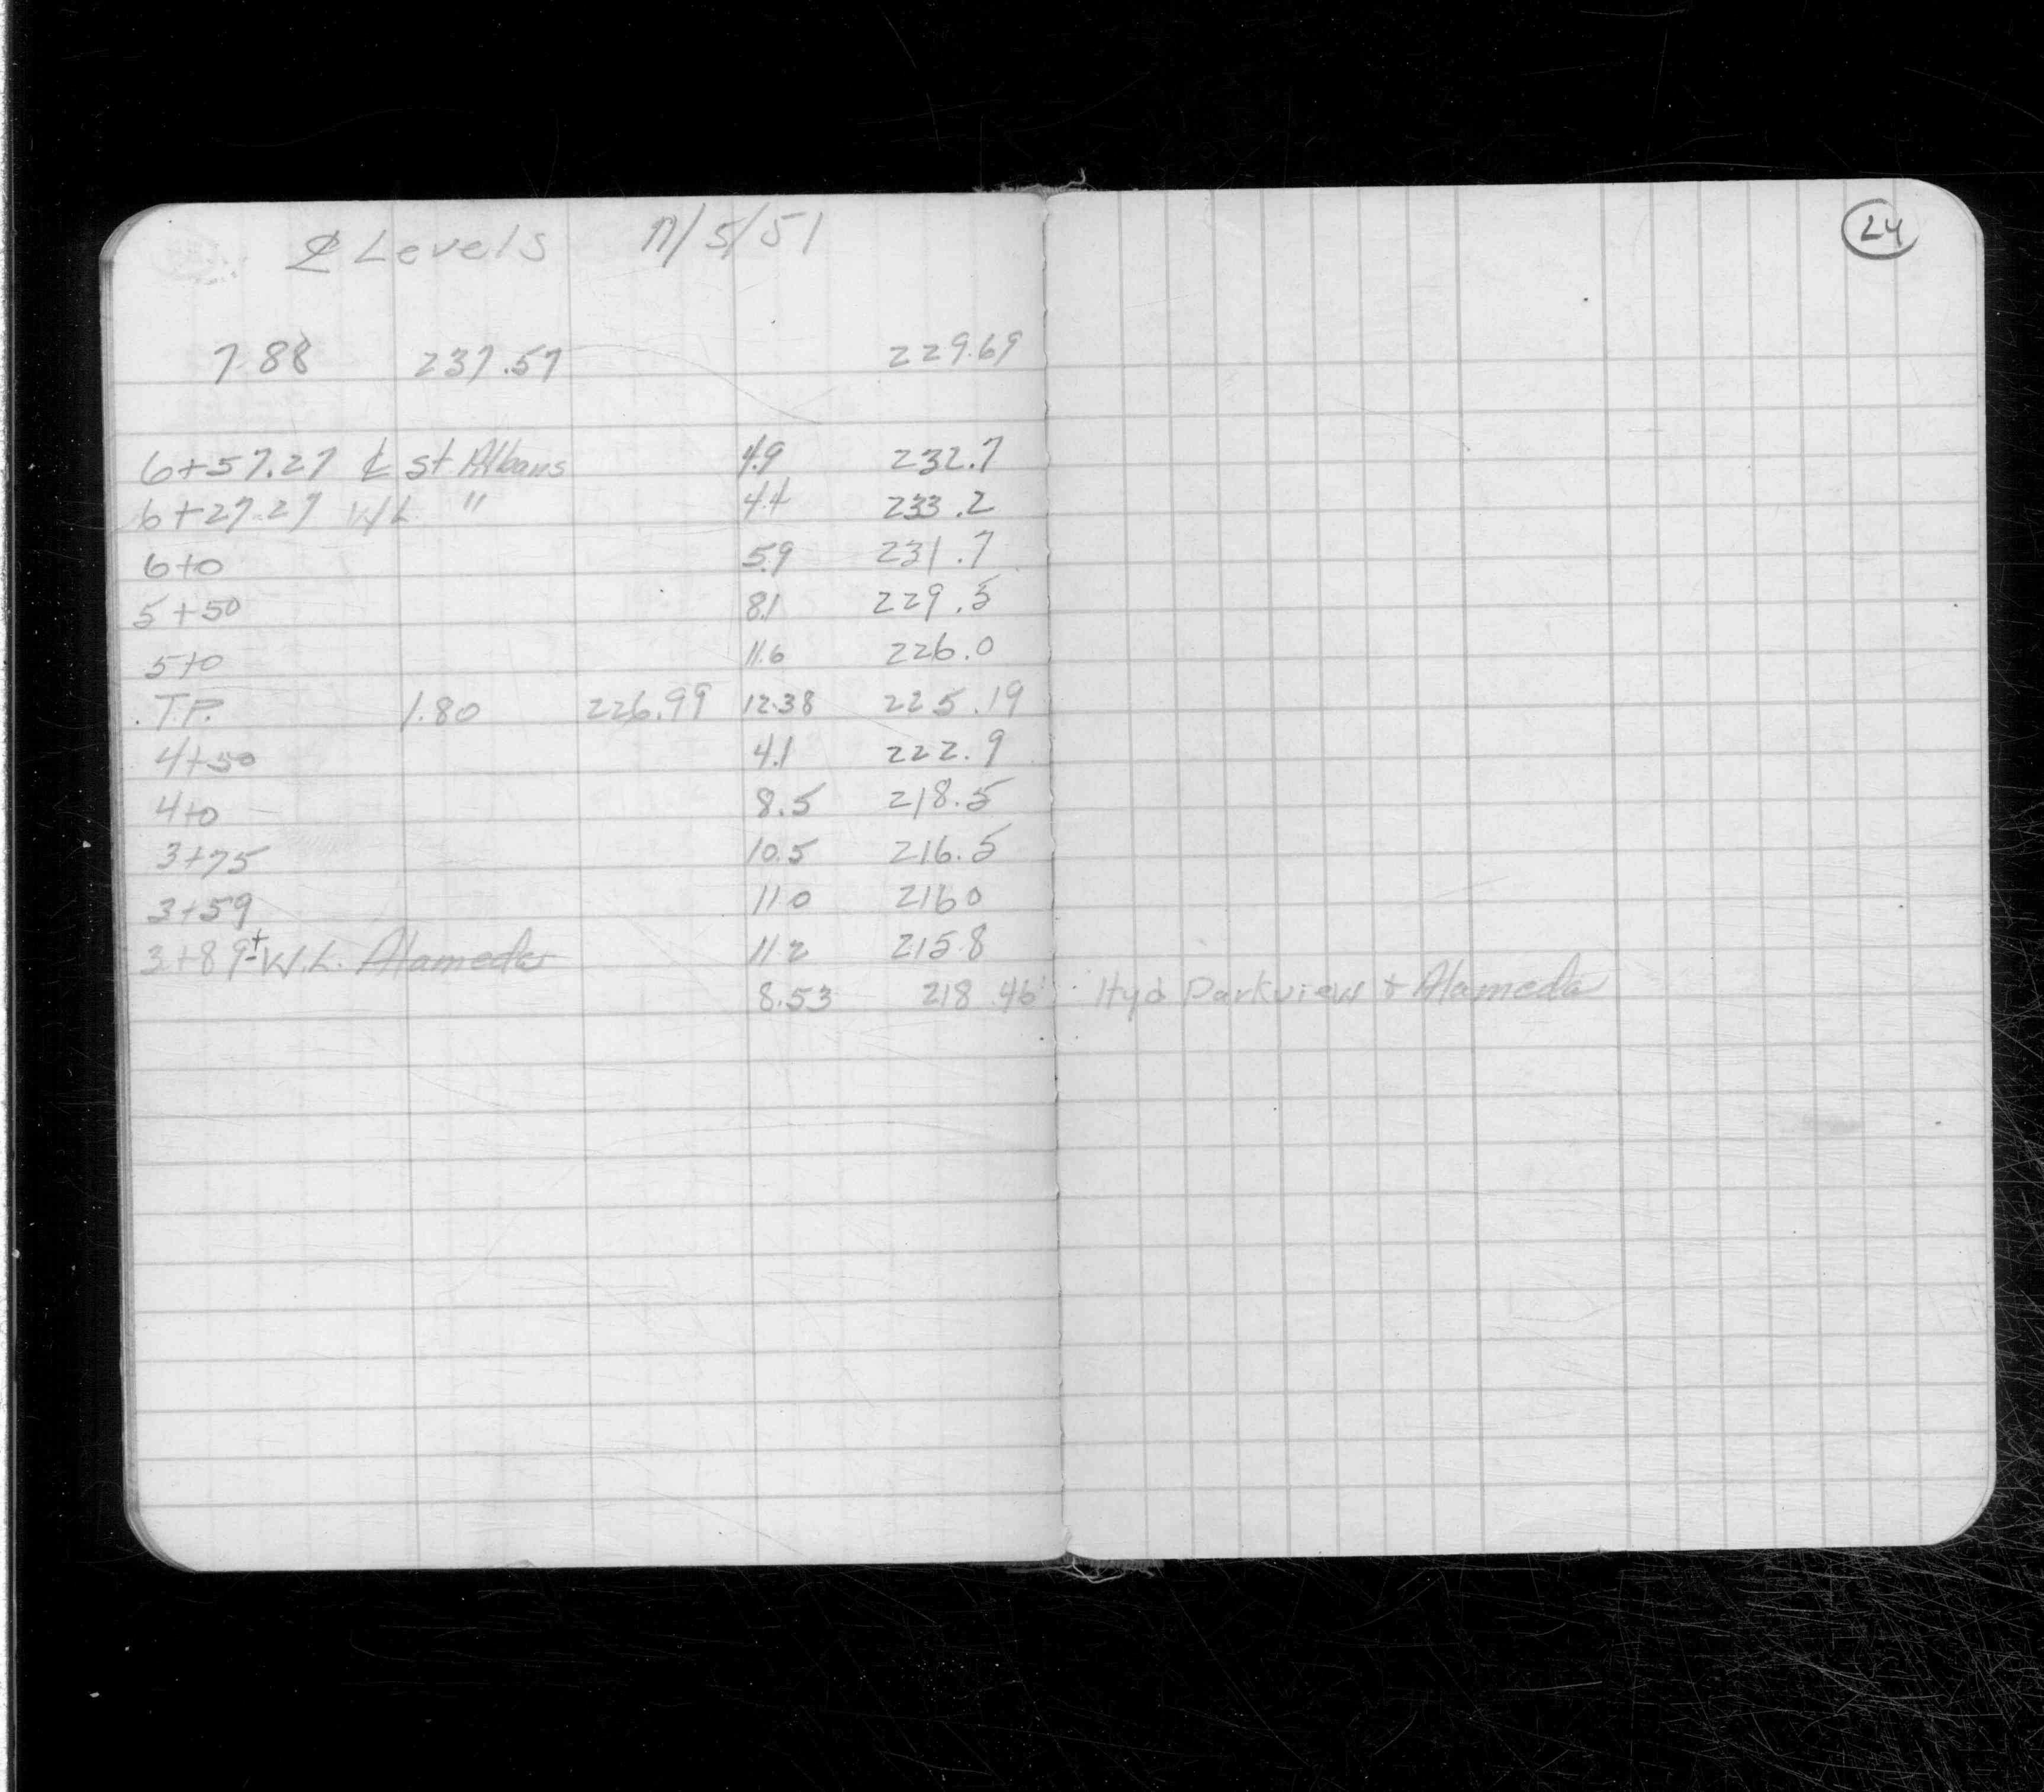 24
℄ Levels 11/5/51
7.88 237.57 229.69
6+57.27 ℄ St Albans 4.9 232.7
6+27.27 W/L " 4.4 233.2
6+0 5.9 231.7
5+50 8.1 229.5
5+0 11.6 226.0
T.P. 1.80 226.99 12.38 225.19
4+50 4.1 222.9
4+0 8.5 218.5
3+75 10.5 216.5
3+59 11 0 216 0
3+89± W.L. Alameda 11 2 215.8
8.53 218.46 Hyd Parkview & Alameda